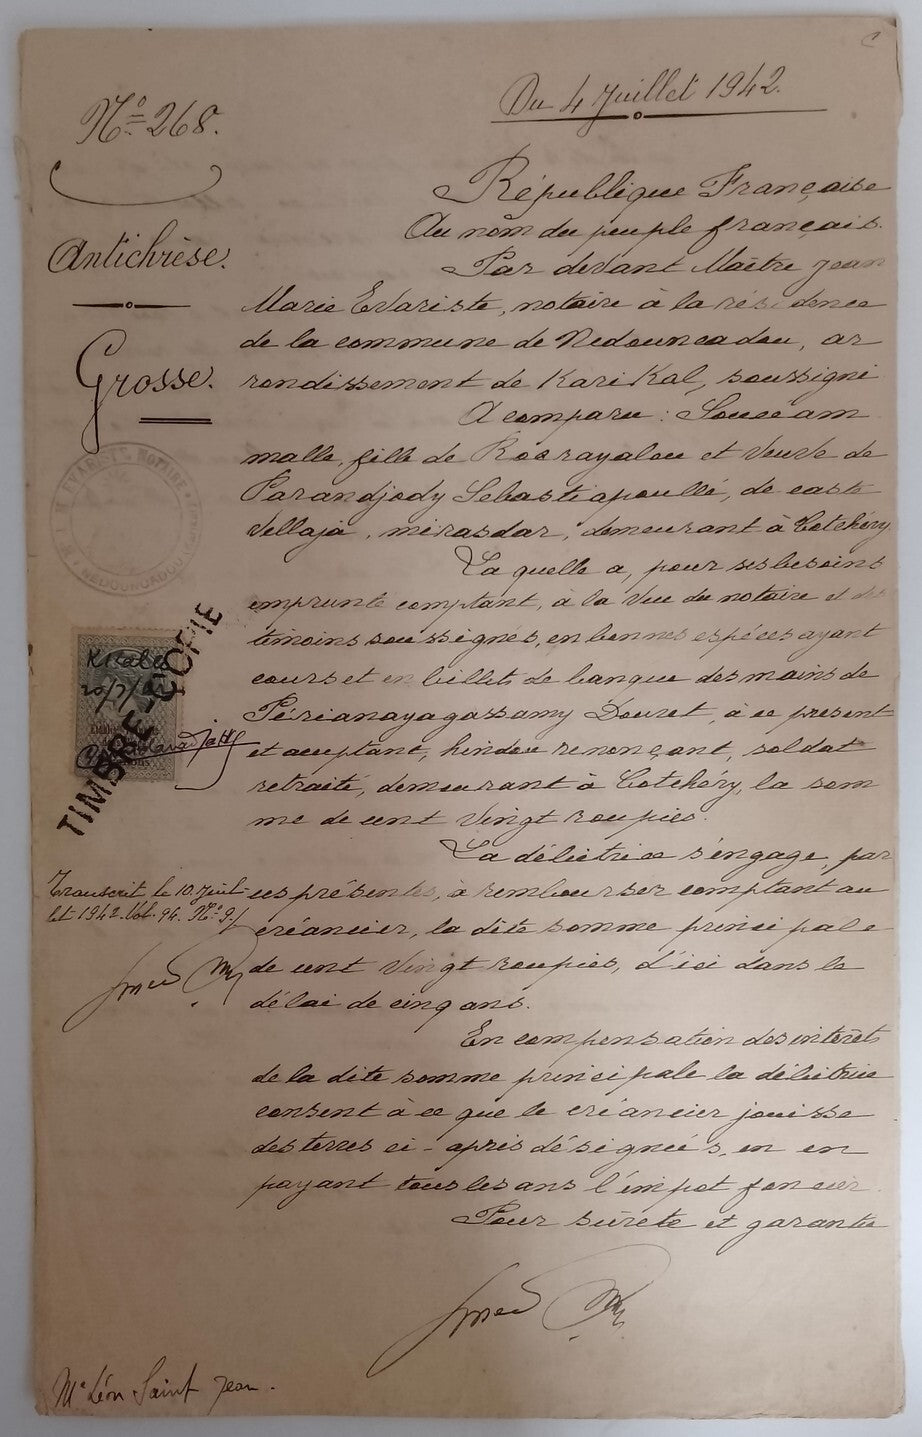 Du 4 Juillet 1942.
Nº 268.
Antichrèse.
Grosse.
République Française
Au nom du peuple français.
Par devant Maître Jean
Marie Evariste, notaire à la résidence
de la commune de Nedouncadou, ar
rondissement de Karikal, soussigné
A comparu : Souceam
malle, fille de Rosrayalou et veuve de
Parandjody Sebastiapoullé, de caste
Vellaja, mirasdar, demeurant à Cotchéry.
La quelle a, pour ses besoins
emprunté comptant, à la vue du notaire et des
témoins soussignés, en bonnes espéces ayant
cours et en billets de banque des mains de
Périanayagassamy Douret, à ce présent
et acceptant, hindou renonçant, soldat
retraité, demeurant à Cotchéry, la som
me de cent vingt roupies.
La débitrice s'engage, par
ces présentes, à rembourser comptant au
créancier, la dite somme principale
de cent vingt roupies, d'ici dans le
délai de cinq ans.
En compensation des intérêts
de la dite somme principale la débitrice
consent à ce que le créancier jouisse
des terres ci-après désignées, en en
payant tous les ans l'impôt foncier.
Pour sûreté et garantie
EVARISTE, NOTAIRE
NEDOUNCADOU
TIMBRE-COPIE
20/7/42
Transcrit le 10 Juil-
let 1942. Vol. 94. Nº 9.
Me Léon Saint Jean.